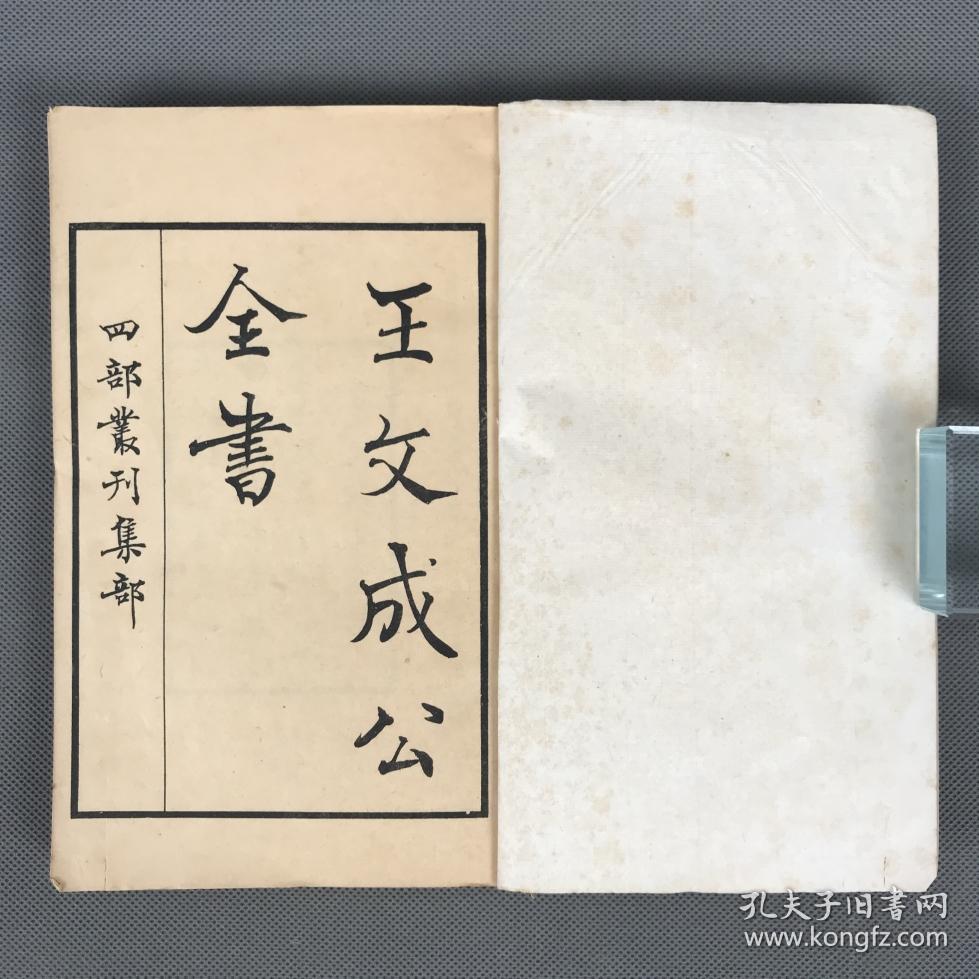 王文成公
全書
四部叢刊集部
孔夫子旧书网
www.kongfz.com